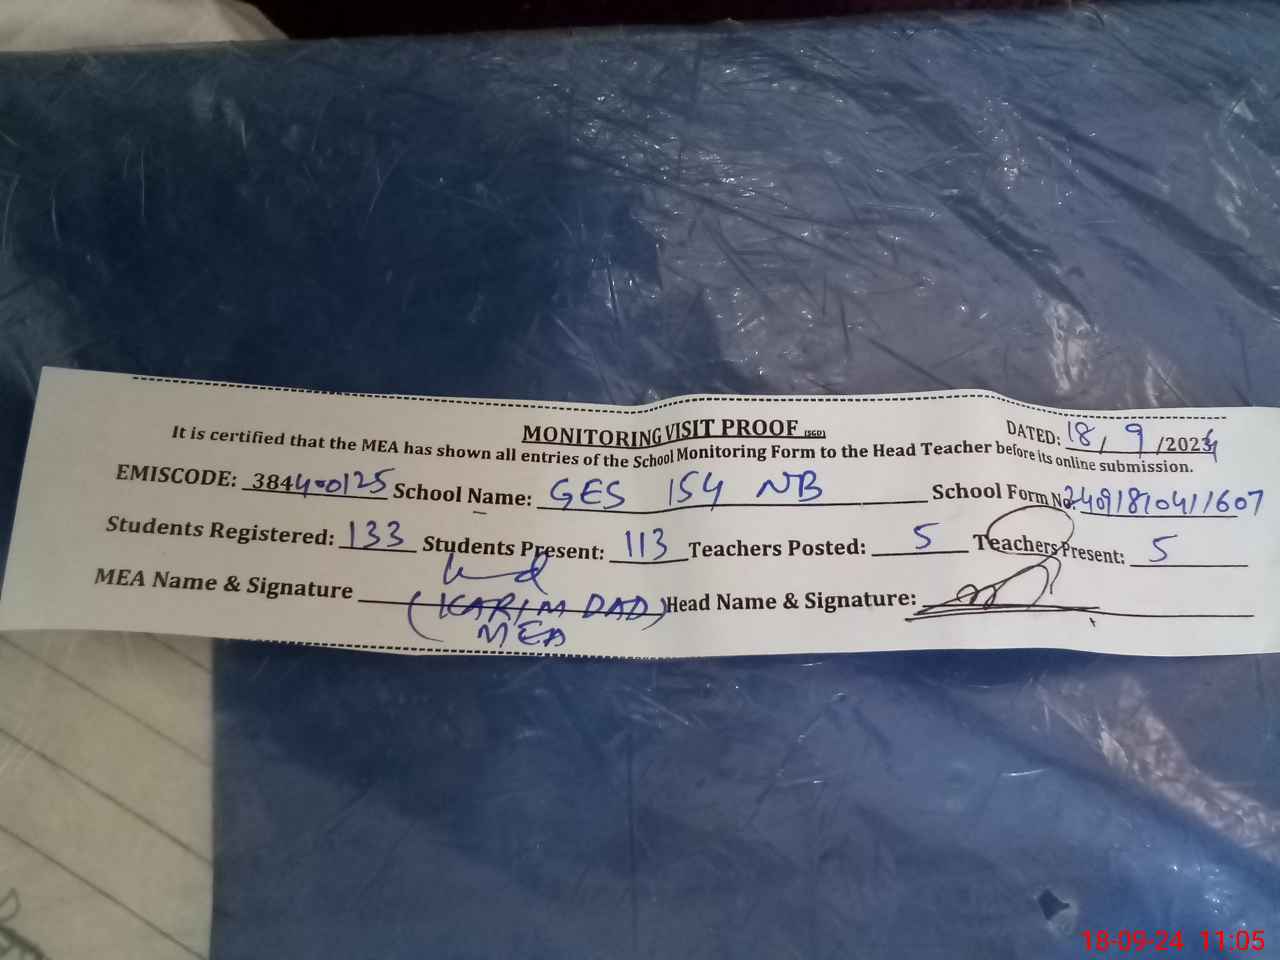 MONITORING VISIT PROOF (SGD)
DATED: 18 / 9 /2024
It is certified that the MEA has shown all entries of the School Monitoring Form to the Head Teacher before its online submission.
EMISCODE: 384400125 School Name: GES 154 NB School Form No. 24091810411607
Students Registered: 133 Students Present: 113 Teachers Posted: 5 Teachers Present: 5
MEA Name & Signature (KARIM DAD) Head Name & Signature:
MEA
18-09-24 11:05